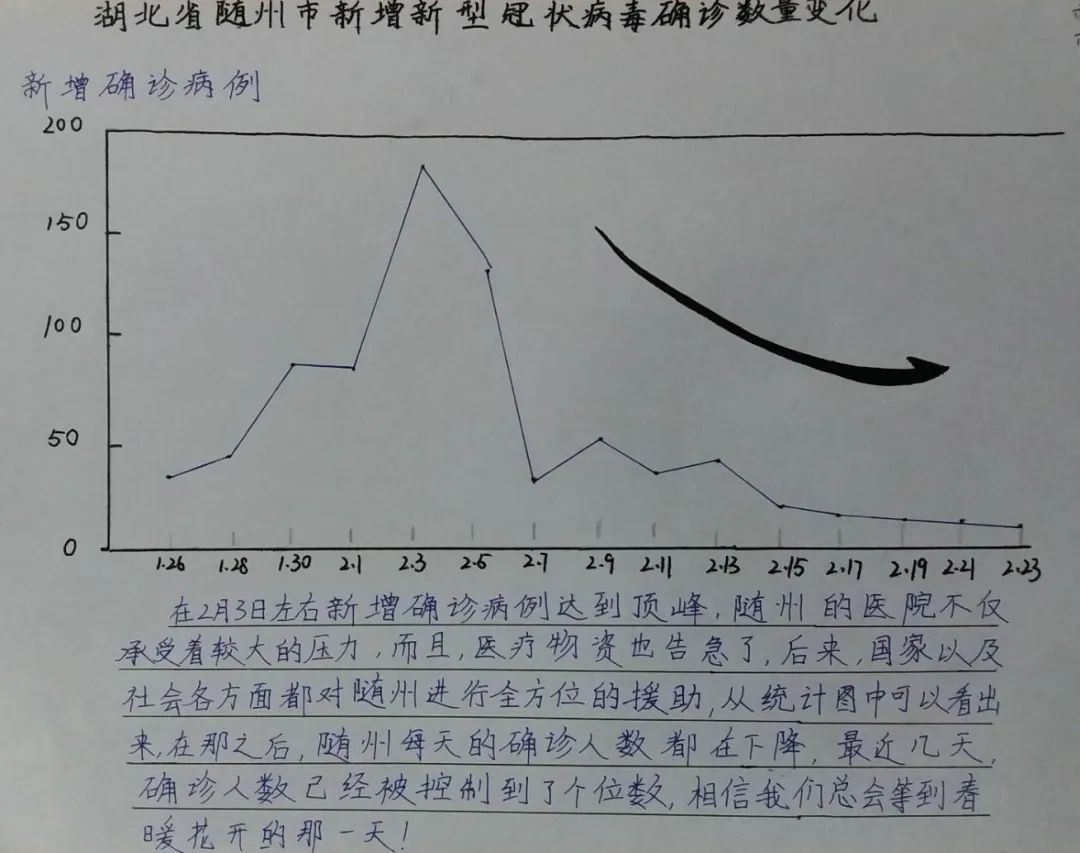 湖北省随州市新增新型冠状病毒确诊数量变化
新增确诊病例
200
150
100
50
0
1.26 1.28 1.30 2.1 2.3 2.5 2.7 2.9 2.11 2.13 2.15 2.17 2.19 2.21 2.23
在2月3日左右新增确诊病例达到顶峰,随州的医院不仅
承受着较大的压力,而且,医疗物资也告急了,后来,国家以及
社会各方面都对随州进行全方位的援助,从统计图中可以看出
来,在那之后,随州每天的确诊人数都在下降,最近几天,
确诊人数已经被控制到了个位数,相信我们总会等到春
暖花开的那一天!